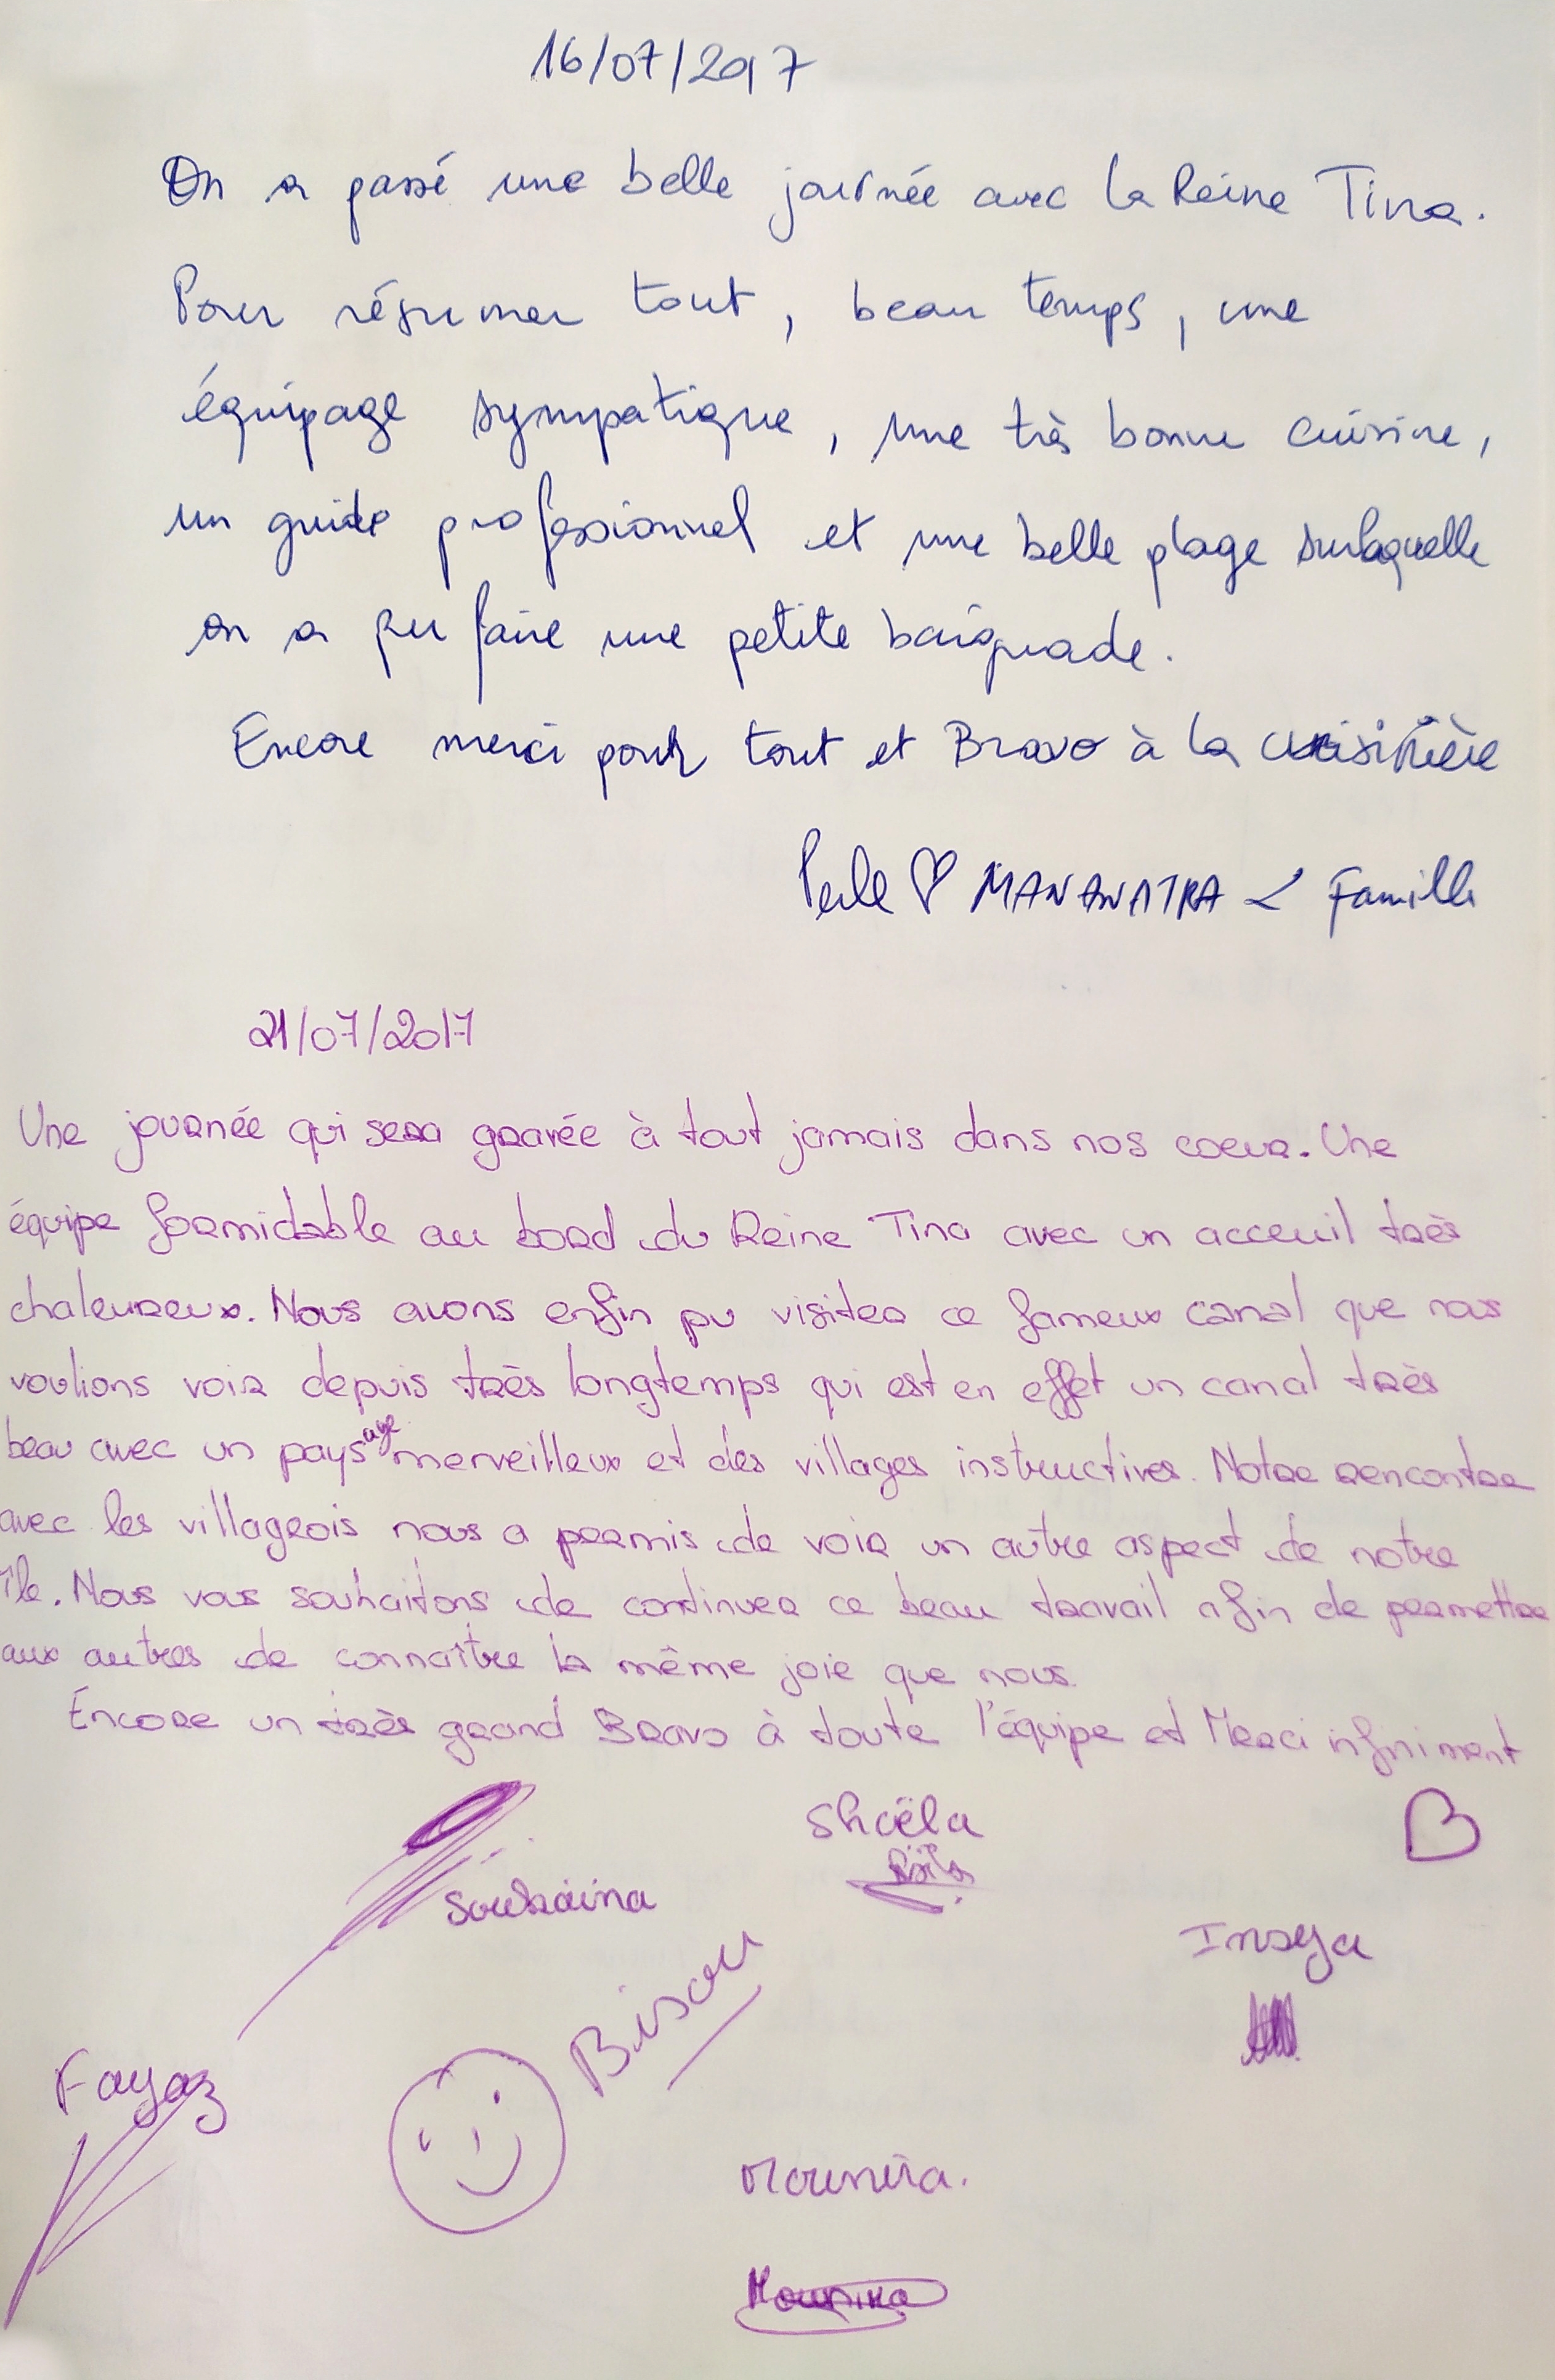 16/07/2017
On a passé une belle journée avec la Reine Tina.
Pour résumer tout, beau temps, une
équipage sympatique, une très bonne cuisine,
un guide professionnel et une belle plage surlaquelle
on a pu faire une petite baignade.
Encore merci pour tout et Bravo à la cuisinière
Perle ♡ MANANATRA & Famille
21/07/2017
Une journée qui sera gravée à tout jamais dans nos coeur. Une
équipe formidable au bord du Reine Tina avec un acceuil très
chaleureux. Nous avons enfin pu visiter ce fameux canal que nous
voulions voir depuis très longtemps qui est en effet un canal très
beau avec un paysage merveilleux et des villages instructives. Notre rencontre
avec les villageois nous a permis de voir un autre aspect de notre
île. Nous vous souhaitons de continuer ce beau travail afin de permettre
aux autres de connaître la même joie que nous.
Encore un très grand Bravo à toute l'équipe et Merci infiniment
Shaëla
Soukaina
Insya
Bisou
Fayaz
Mounira.
Mounira